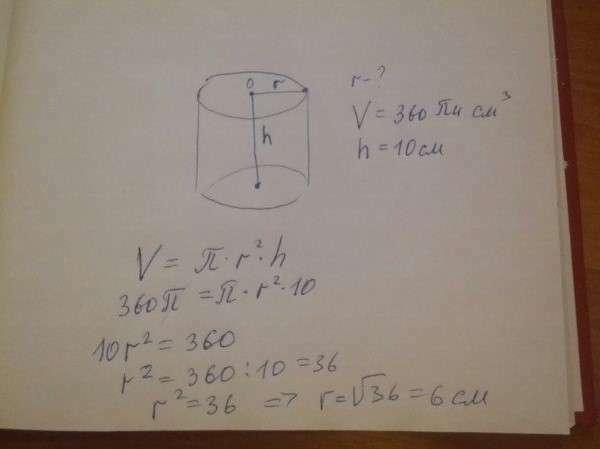 O r
h
r - ?
V = 360 Пи см³
h = 10 см
V = π · r² · h
360π = π · r² · 10
10r² = 360
r² = 360 : 10 = 36
r² = 36 => r = √36 = 6 см